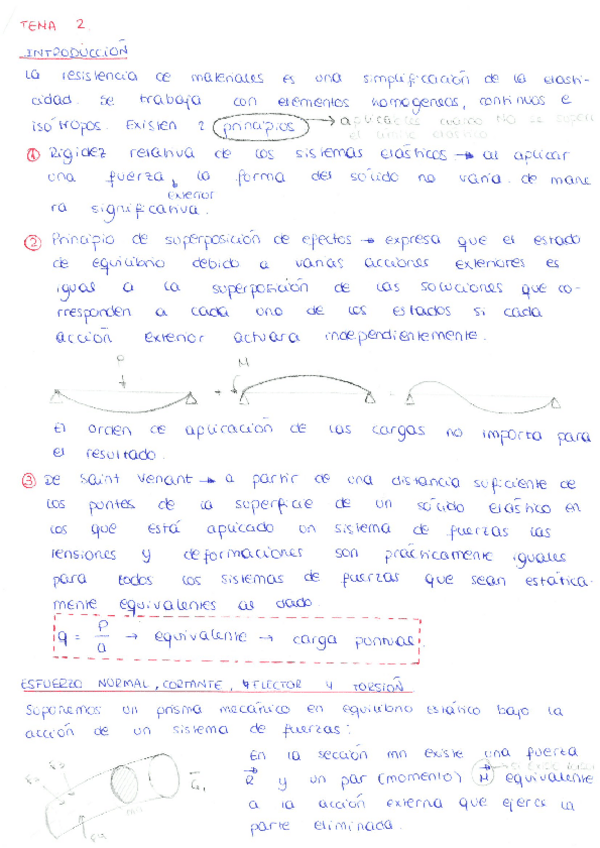 TEMA 2.
INTRODUCCIÓN
La resistencia de materiales es una simplificación de la elasti-
cidad. Se trabaja con elementos homogeneos, continuos e
isótropos. Existen 2 principios → aplicables cuando NO se supera
el límite elástico
① Rigidez relativa de los sistemas elásticos → al aplicar
una fuerza, la forma del sólido no varía de mane
exterior
ra significativa.
② Principio de superposición de efectos → expresa que el estado
de equilibrio debido a varias acciones exteriores es
igual a la superposición de las soluciones que co-
rresponden a cada uno de los estados si cada
acción exterior actuara independientemente.
P
M
+
=
El orden de aplicación de las cargas no importa para
el resultado.
③ De Saint Venant → a partir de una distancia suficiente de
los puntos de la superficie de un sólido elástico en
los que está aplicado un sistema de fuerzas las
tensiones y deformaciones son prácticamente iguales
para todos los sistemas de fuerzas que sean estática-
mente equivalentes al dado.
q = P/a → equivalente → carga puntual
ESFUERZO NORMAL, CORTANTE, FLECTOR Y TORSIÓN
Suponemos un prisma mecánico en equilibrio estático bajo la
acción de un sistema de fuerzas:
En la sección mn existe una fuerza
R y un par (momento) M equivalente
a la acción externa que ejerce la
parte eliminada.